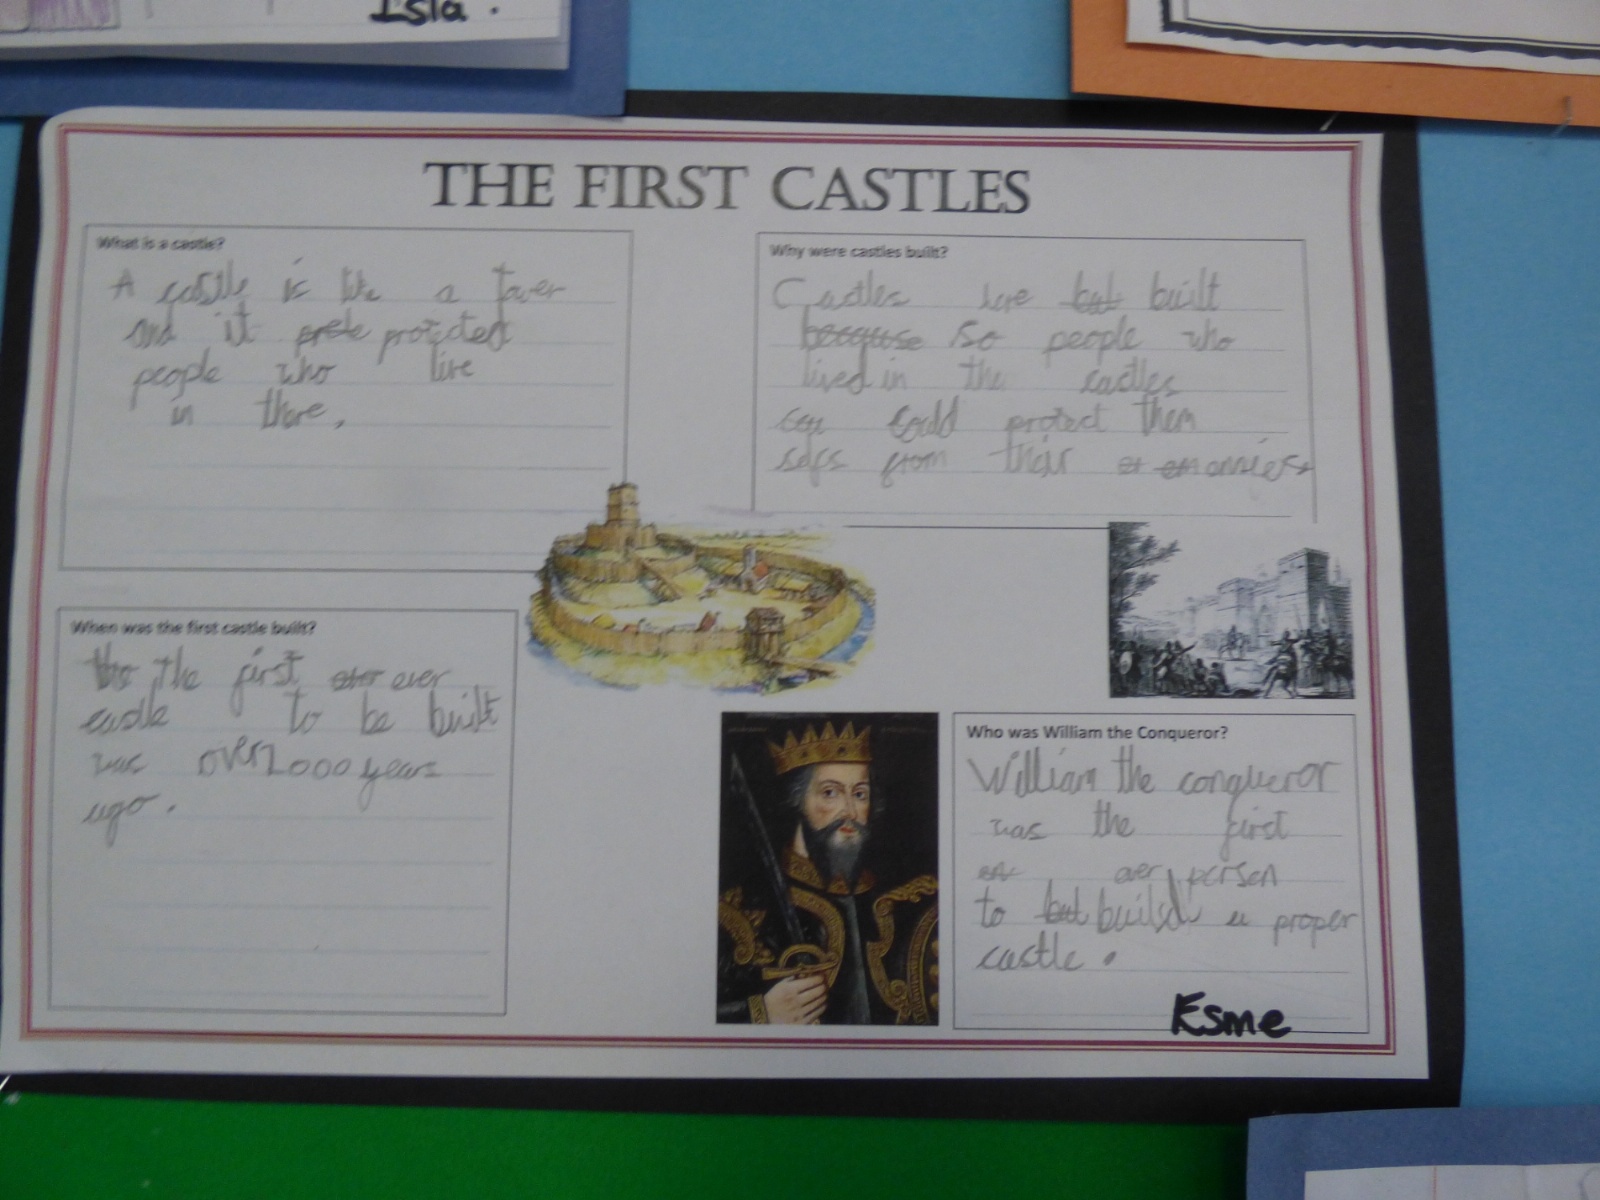 Isla.
THE FIRST CASTLES
What is a castle?
A castle is like a tower
and it protected
people who live
in there.
Why were castles built?
Castles were but built
because so people who
lived in the castles
could protect them
from their
When was the first castle built?
the first ever
castle to be built
was over 2000 years
ago.
Who was William the Conqueror?
William the conqueror
was the first
ever person
to but builed a proper
castle.
Esme